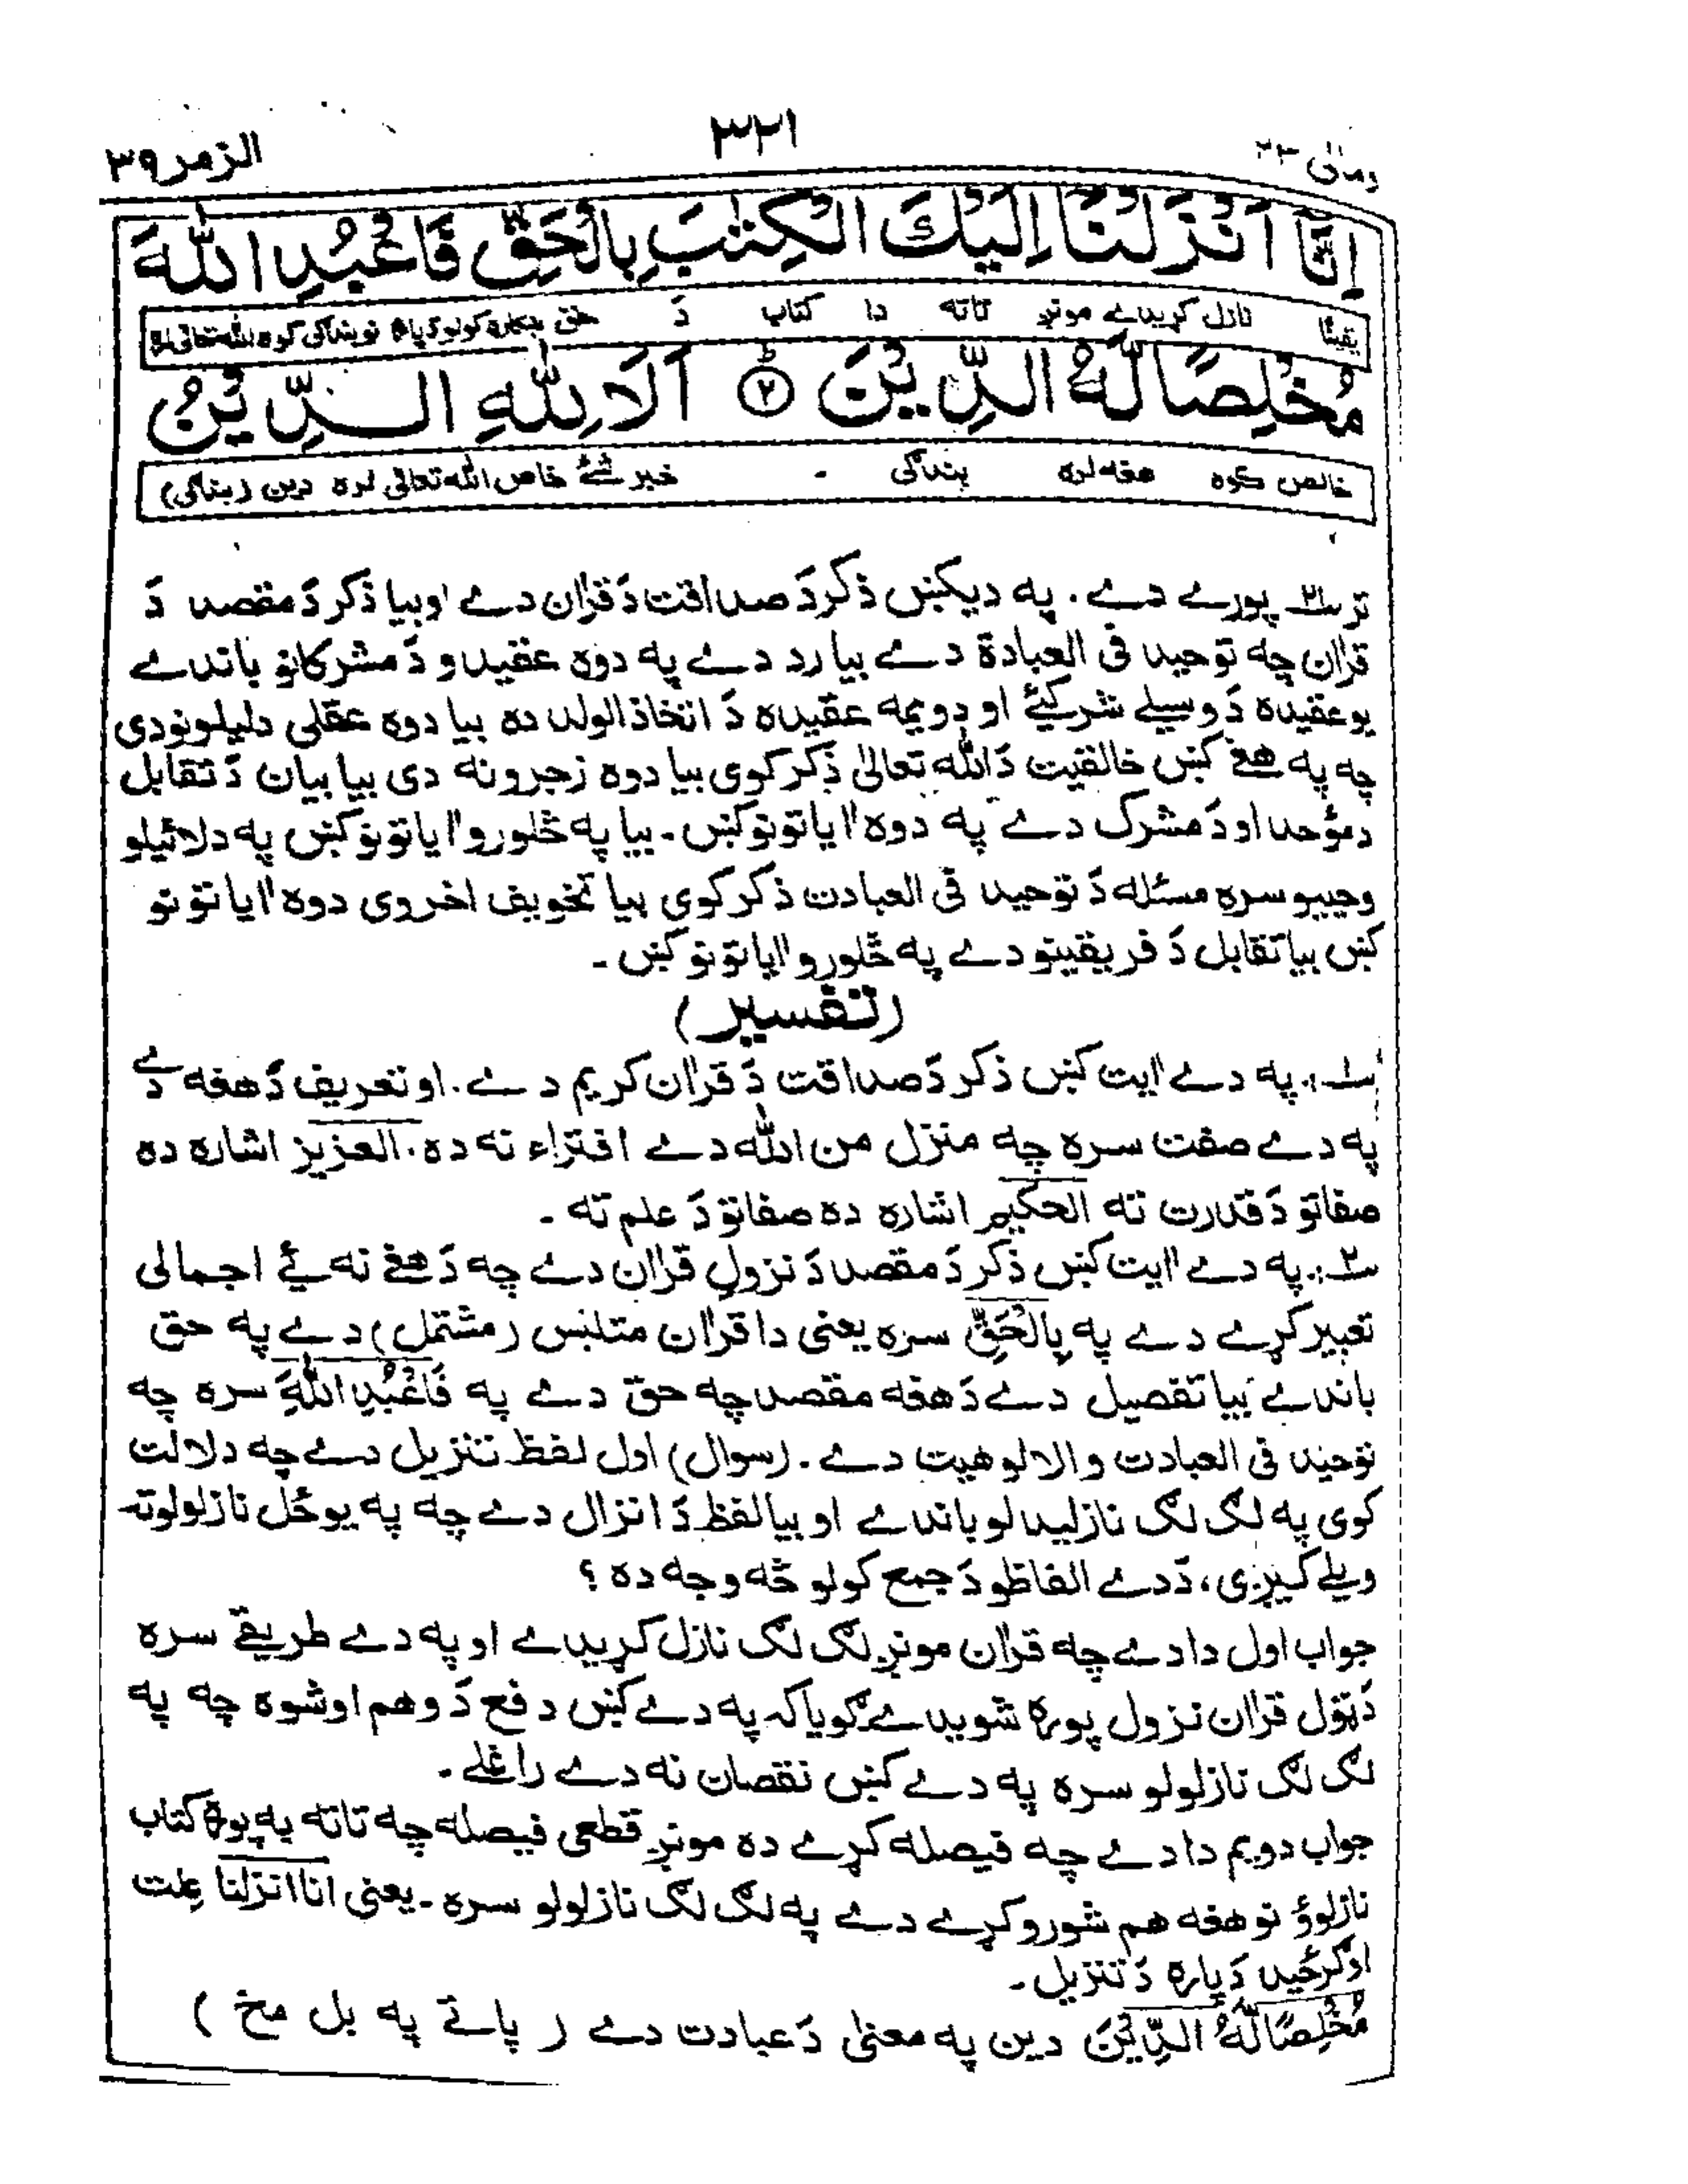 ومالی ۲۳
۳۲۱
الزمر ۳۹
اِنَّا اَنْزَلْنَا اِلَيْكَ الْكِتٰبَ بِالْحَقِّ فَاعْبُدِ اللّٰهَ
يقينًا نازل کړيدے مونږ تاته دا کتاب دَ حق ښکاره کولو دَپاره نو بندګی کوه الله تعالی لره
مُخْلِصًا لَّهُ الدِّيْنَ ۲ اَلَا لِلّٰهِ الدِّيْنُ
خالص کوه هغه لره بندګی - خبر شئے خاص الله تعالی لره دین (بندګی)
تر ۳۱ پورے دے. په دیکښ ذکر دَ صداقت دَ قراٰن دے او بیا ذکر دَ مقصد دَ
قراٰن چه توحید فی العبادة دے بیا رد دے په دوه عقیدو دَ مشرکانو باندے
یو عقیده دَ وسیلے شرکیئے او دویمه عقیده دَ اتخاذ الولد ده بیا دوه عقلی دلیلونو دی
چه په هغے کښ خالقیت دَ الله تعالیٰ ذکر کوی بیا دوه زجرونه دی بیا بیان دَ تقابل
د مؤحد او دَ مشرک دے په دوه اٰیاتونو کښ ـ بیا په څلورو اٰیاتونو کښ په دلائیلو
وحییو سره مسئله دَ توحید فی العبادت ذکر کوی بیا تخویف اخروی دوه اٰیاتونو
کښ بیا تقابل دَ فریقینو دے په څلورو اٰیاتونو کښ ـ
(تفسیر)
۱ :. په دے اٰیت کښ ذکر دَ صداقت دَ قراٰن کریم دے. او تعریف دَ هغه دے
په دے صفت سره چه منزل من الله دے افتراء نه ده. العزیز اشاره ده
صفاتو دَ قدرت ته الحکیم اشاره ده صفاتو دَ علم ته ـ
۲ :. په دے اٰیت کښ ذکر دَ مقصد دَ نزولِ قراٰن دے چه دَ هغے نه ئے اجمالی
تعبیر کړے دے په بِالْحَقِّ سره یعنی دا قراٰن متلبس (مشتمل) دے په حق
باندے بیا تفصیل دے دَ هغه مقصد چه حق دے په فَاعْبُدِ اللّٰهَ سره چه
توحید فی العبادت والالوهیت دے. (سوال) اول لفظ تنزیل دے چه دلالت
کوی په لګ لګ نازلیدلو باندے او بیا لفظ دَ انزال دے چه په یو ځل نازلولو ته
ویلے کیږی، دَ دے الفاظو دَ جمع کولو څه وجه ده ؟
جواب اول دا دے چه قراٰن مونږ لګ لګ نازل کړیدے او په دے طریقے سره
دَ ټول قراٰن نزول پوره شویدے ګویا که په دے کښ دفع دَ وهم اوشوه چه په
لګ لګ نازلولو سره په دے کښ نقصان نه دے راغلے ـ
جواب دویم دا دے چه فیصله کړے ده مونږ قطعی فیصله چه تاته به پوره کتاب
نازلوؤ نو هغه هم شورو کړے دے په لګ لګ نازلولو سره ـ یعنی انا انزلنا علت
اوګرځید دَ پاره دَ تنزیل ـ
مُخْلِصًا لَّهُ الدِّيْنَ دین په معنیٰ دَ عبادت دے ( پاتے په بل مخ )